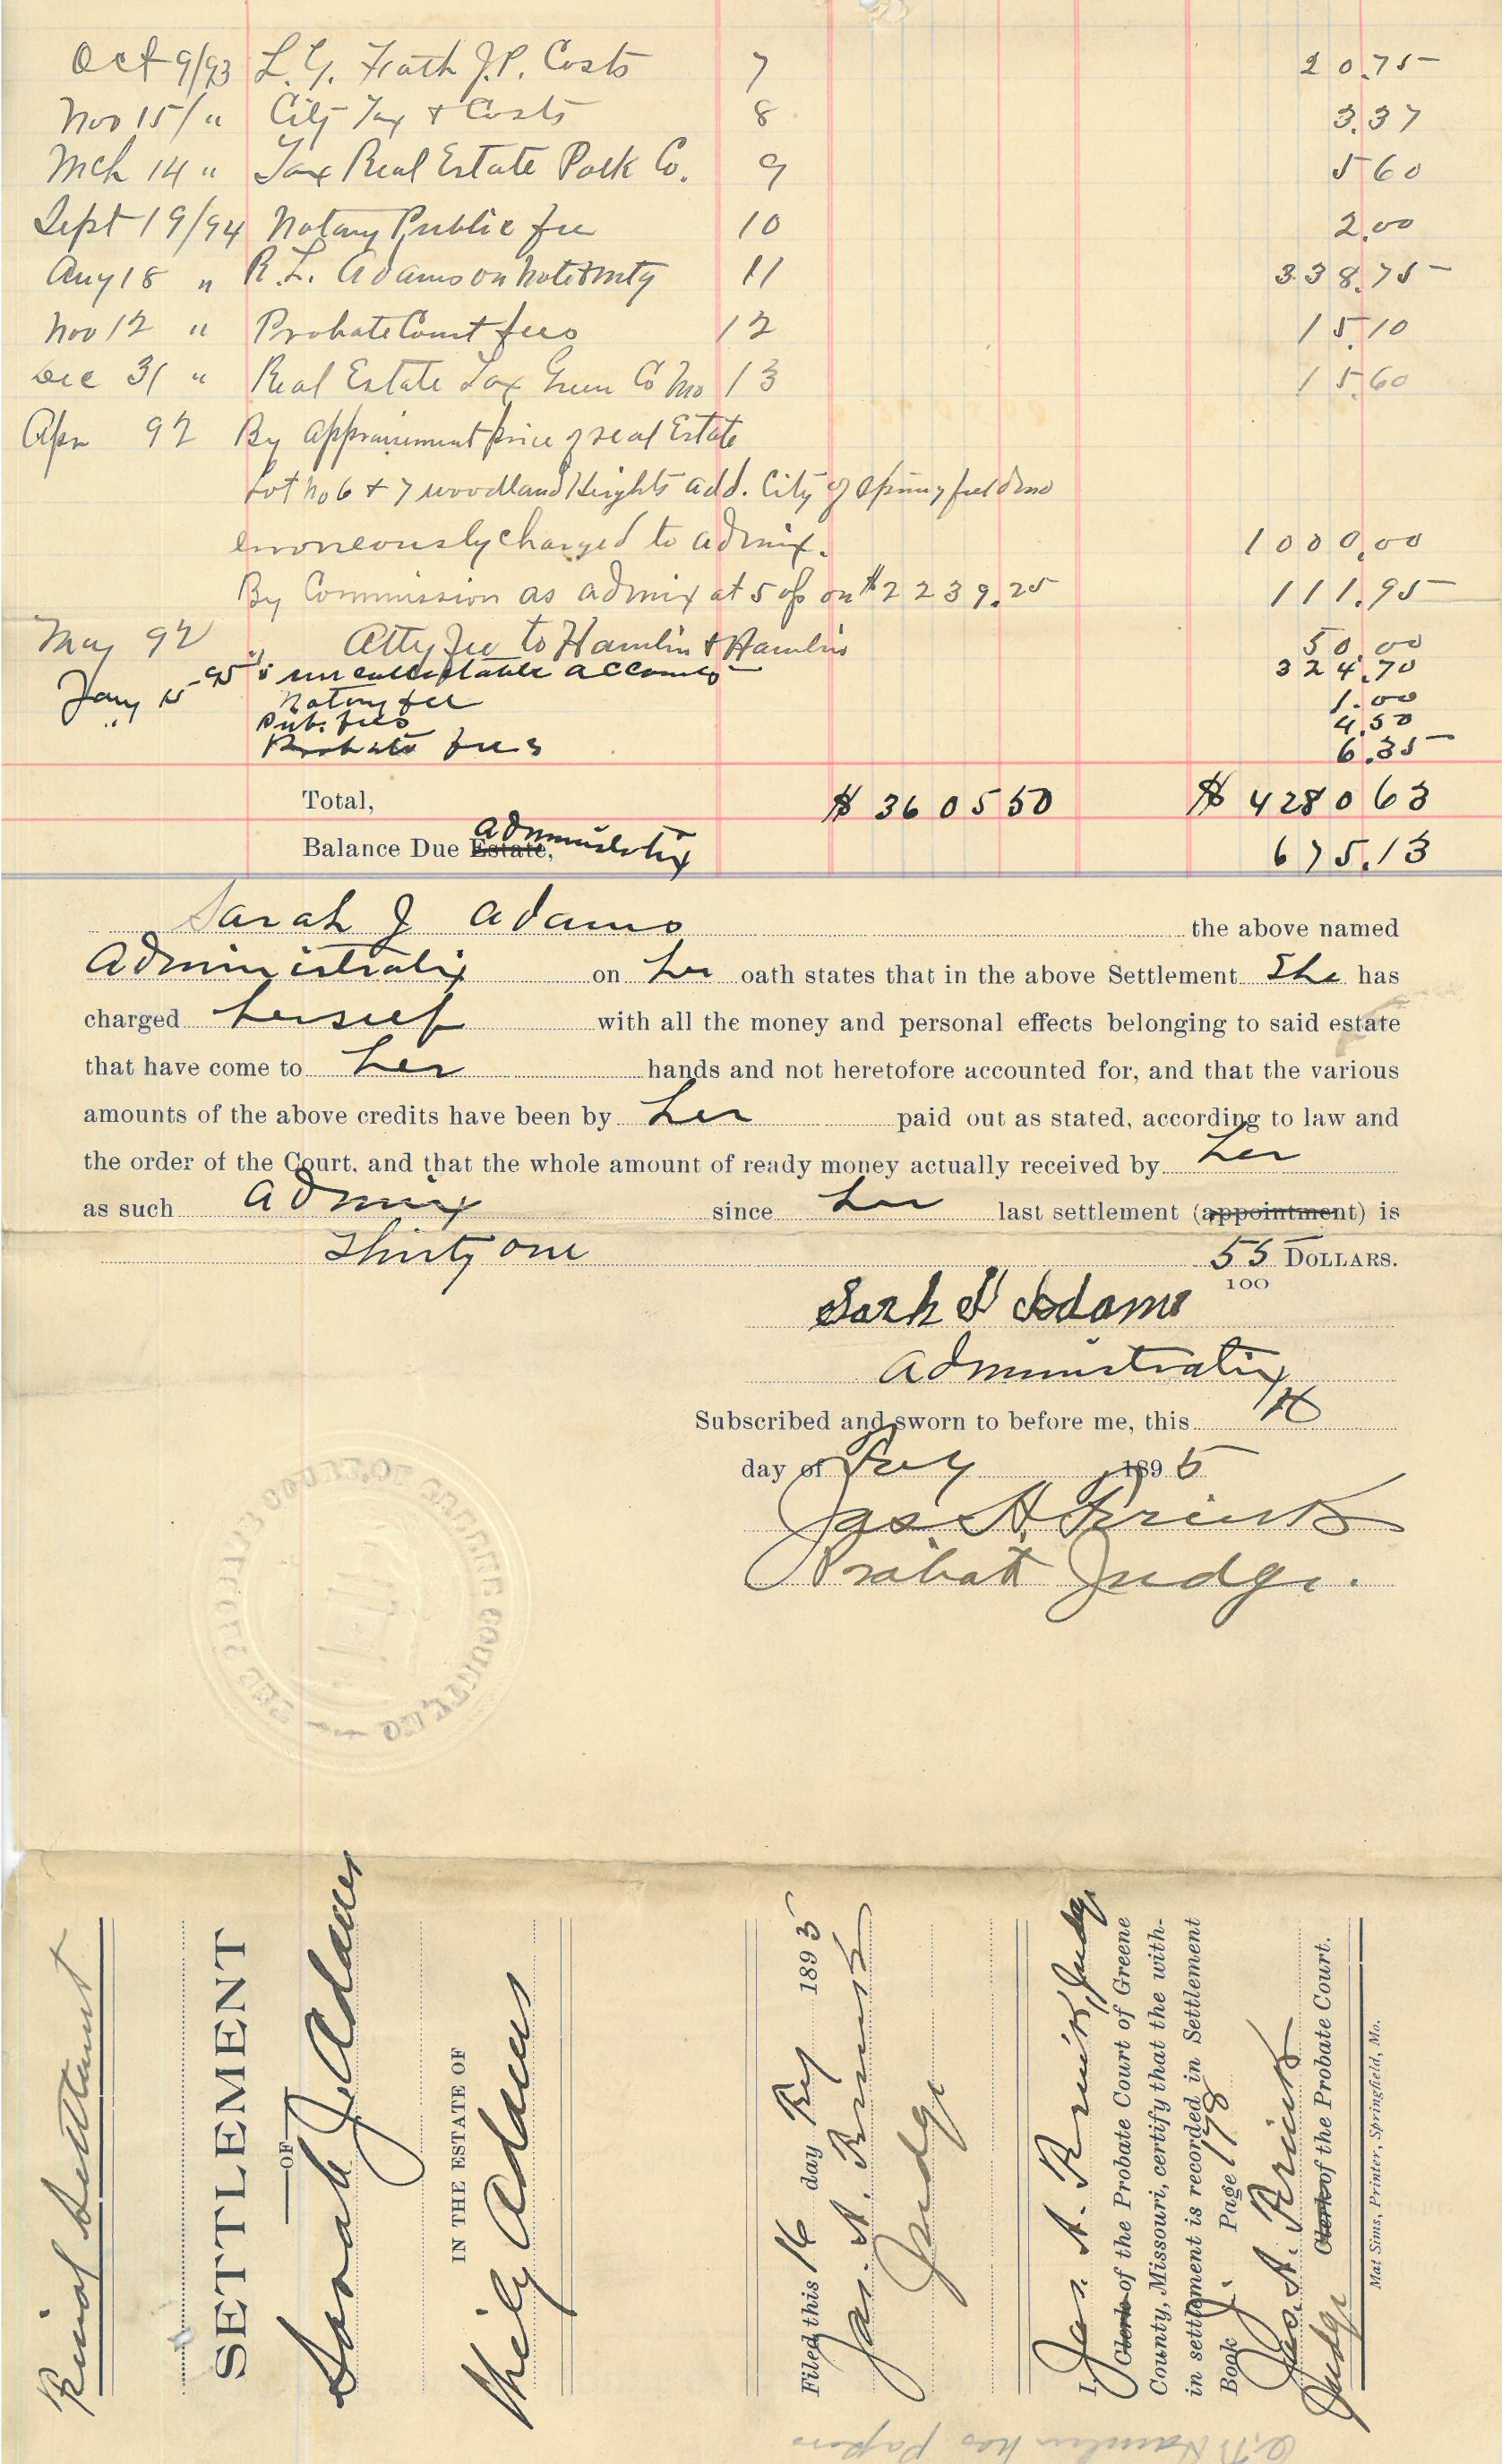 Oct 9/93 L. G. Frath J.P. Costs 7 20.75
Nov 15/" City Tax & Costs 8 3.37
Mch 14 " Tax Real Estate Polk Co. 9 5 60
Sept 19/94 Notary Public fee 10 2.00
Aug 18 " R. L. Adams on Note & Mtg 11 338.75
Nov 12 " Probate Court fees 12 15.10
Dec 31 " Real Estate Tax Green Co Mo 13 15.60
Apr 92 By appraisement price of real Estate
Lot No 6 & 7 Woodland Heights add. City of Springfield Mo
erroneously charged to admix. 1000.00
By Commission as admix at 5 % on $2239.25 111.95
May 92 " Atty fee to Hamlin & Hamlin 50.00
Jany 15 95 " uncollectable accounts 324.70
" Notary fee 1.00
Pub. fees 4.50
Probate fees 6.35
Total, $ 3605 50 $ 4280 63
Balance Due Estate, Administratrix 675.13
Sarah J Adams the above named
Administratix on her oath states that in the above Settlement She has
charged herself with all the money and personal effects belonging to said estate
that have come to her hands and not heretofore accounted for, and that the various
amounts of the above credits have been by her paid out as stated, according to law and
the order of the Court, and that the whole amount of ready money actually received by her
as such admix since her last settlement (appointment) is
Thirty one 55 DOLLARS.
100
Sarh J Adams
Administratix
Subscribed and sworn to before me, this 16
day of Jany 1895
Jas A. Prink
Probate Judge.
THE PROBATE COURT OF GREENE COUNTY, MO.
Final Settlement
SETTLEMENT
OF
Sarah J. Adams
IN THE ESTATE OF
Wily Adams
Filed this 16 day 1895
Jas. A. Prink
Judge
I, Jas. A. Prink, Judge
Clerk of the Probate Court of Greene
County, Missouri, certify that the with-
in settlement is recorded in Settlement
Book J. Page 178
Jas. A. Prink
Judge Clerk of the Probate Court.
Mat Sims, Printer, Springfield, Mo.
Hamlin has papers